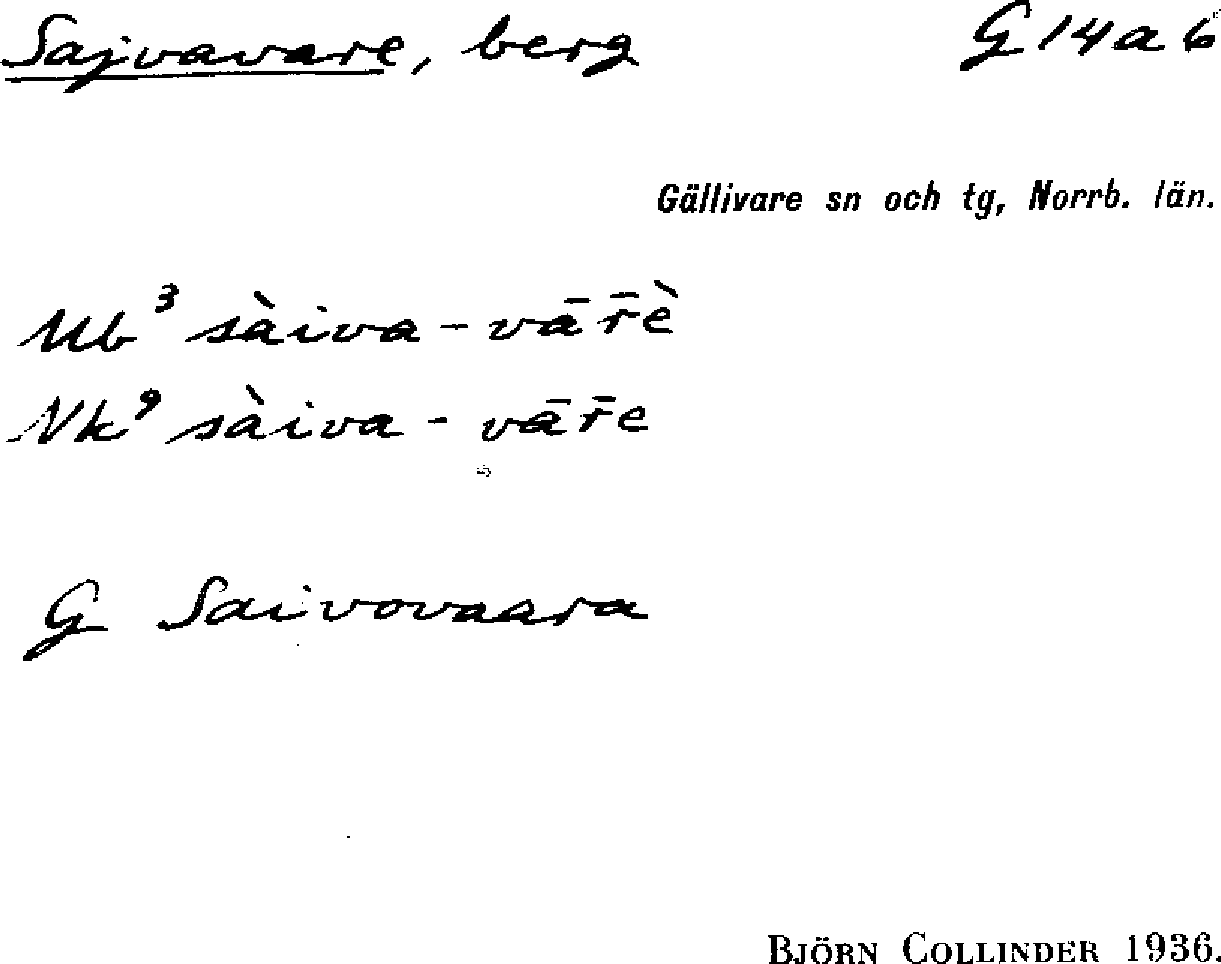 Sajvavare, berg G 14 a 6
Gällivare sn och tg, Norrb. län.
Ub³ sàiva-vār̄è
Nk⁹ sàiva-vār̄e
G Saivovaara
BJÖRN COLLINDER 1936.